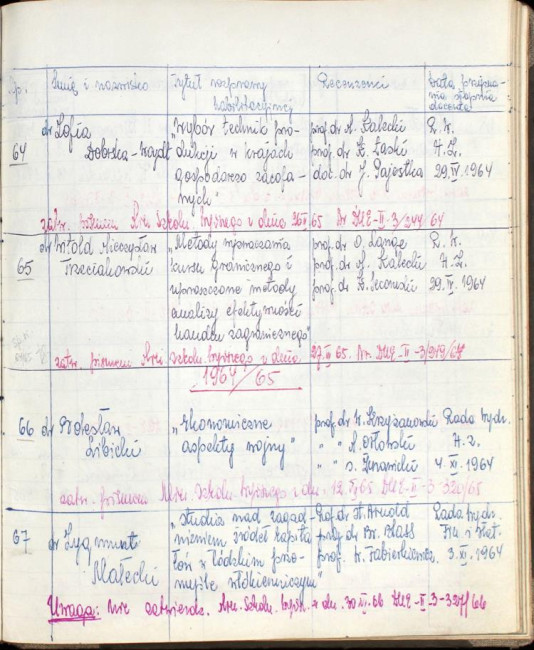 Lp. Imię i nazwisko Tytuł rozprawy habilitacyjnej Recenzenci Data przyzna-
nia stopnia
docenta
64 dr Zofia Dobrska-
"Wybór technik pro-
dukcji w krajach
gospodarczo zacofa-
nych"
prof. dr M. Kalecki
prof. dr K. Łaski
doc. dr J. Pajestka
R. W.
H.Z.
29.IV.1964
zatw. pismem Min. Szkoln. Wyższego z dnia 65 Nr DUE-II-3/ 64
65 dr Witold Mieczysław
Trzeciakowski
"Metody wyznaczania
kursu granicznego i
uproszczone metody
analizy efektywności
handlu zagranicznego"
prof. dr O. Lange
prof. dr M. Kalecki
prof. dr Z.
R. W.
H.Z.
29.IV.1964
zatw. pismem Min. Szkoln. Wyższego z dnia 65. Nr. DUE-II-3/
1964/65
66 dr Bolesław
Cibicki
"Ekonomiczne
aspekty wojny"
prof. dr W. Krzyżanowski
" " M. Orłowski
" " J. Żurawicki
Rada Wydz.
H.Z.
4.XI.1964
zatw. pismem Min. Szkoln. Wyższego z dn. 65 DUE-II-3-
67 dr Zygmunt
Małecki
"Studia nad zagad-
nieniem źródeł kapita-
łów w łódzkim prze-
myśle włókienniczym"
Prof. dr St. Arnold
prof. dr Br. Blass
prof. W. Fabierkiewicz
Rada Wydz.
Fin. i Stat.
3.XI.1964
Uwaga: Nie zatwierdz. Min. Szkoln. Wyższ. z dn. 30 66 DUE-II-3-327/66